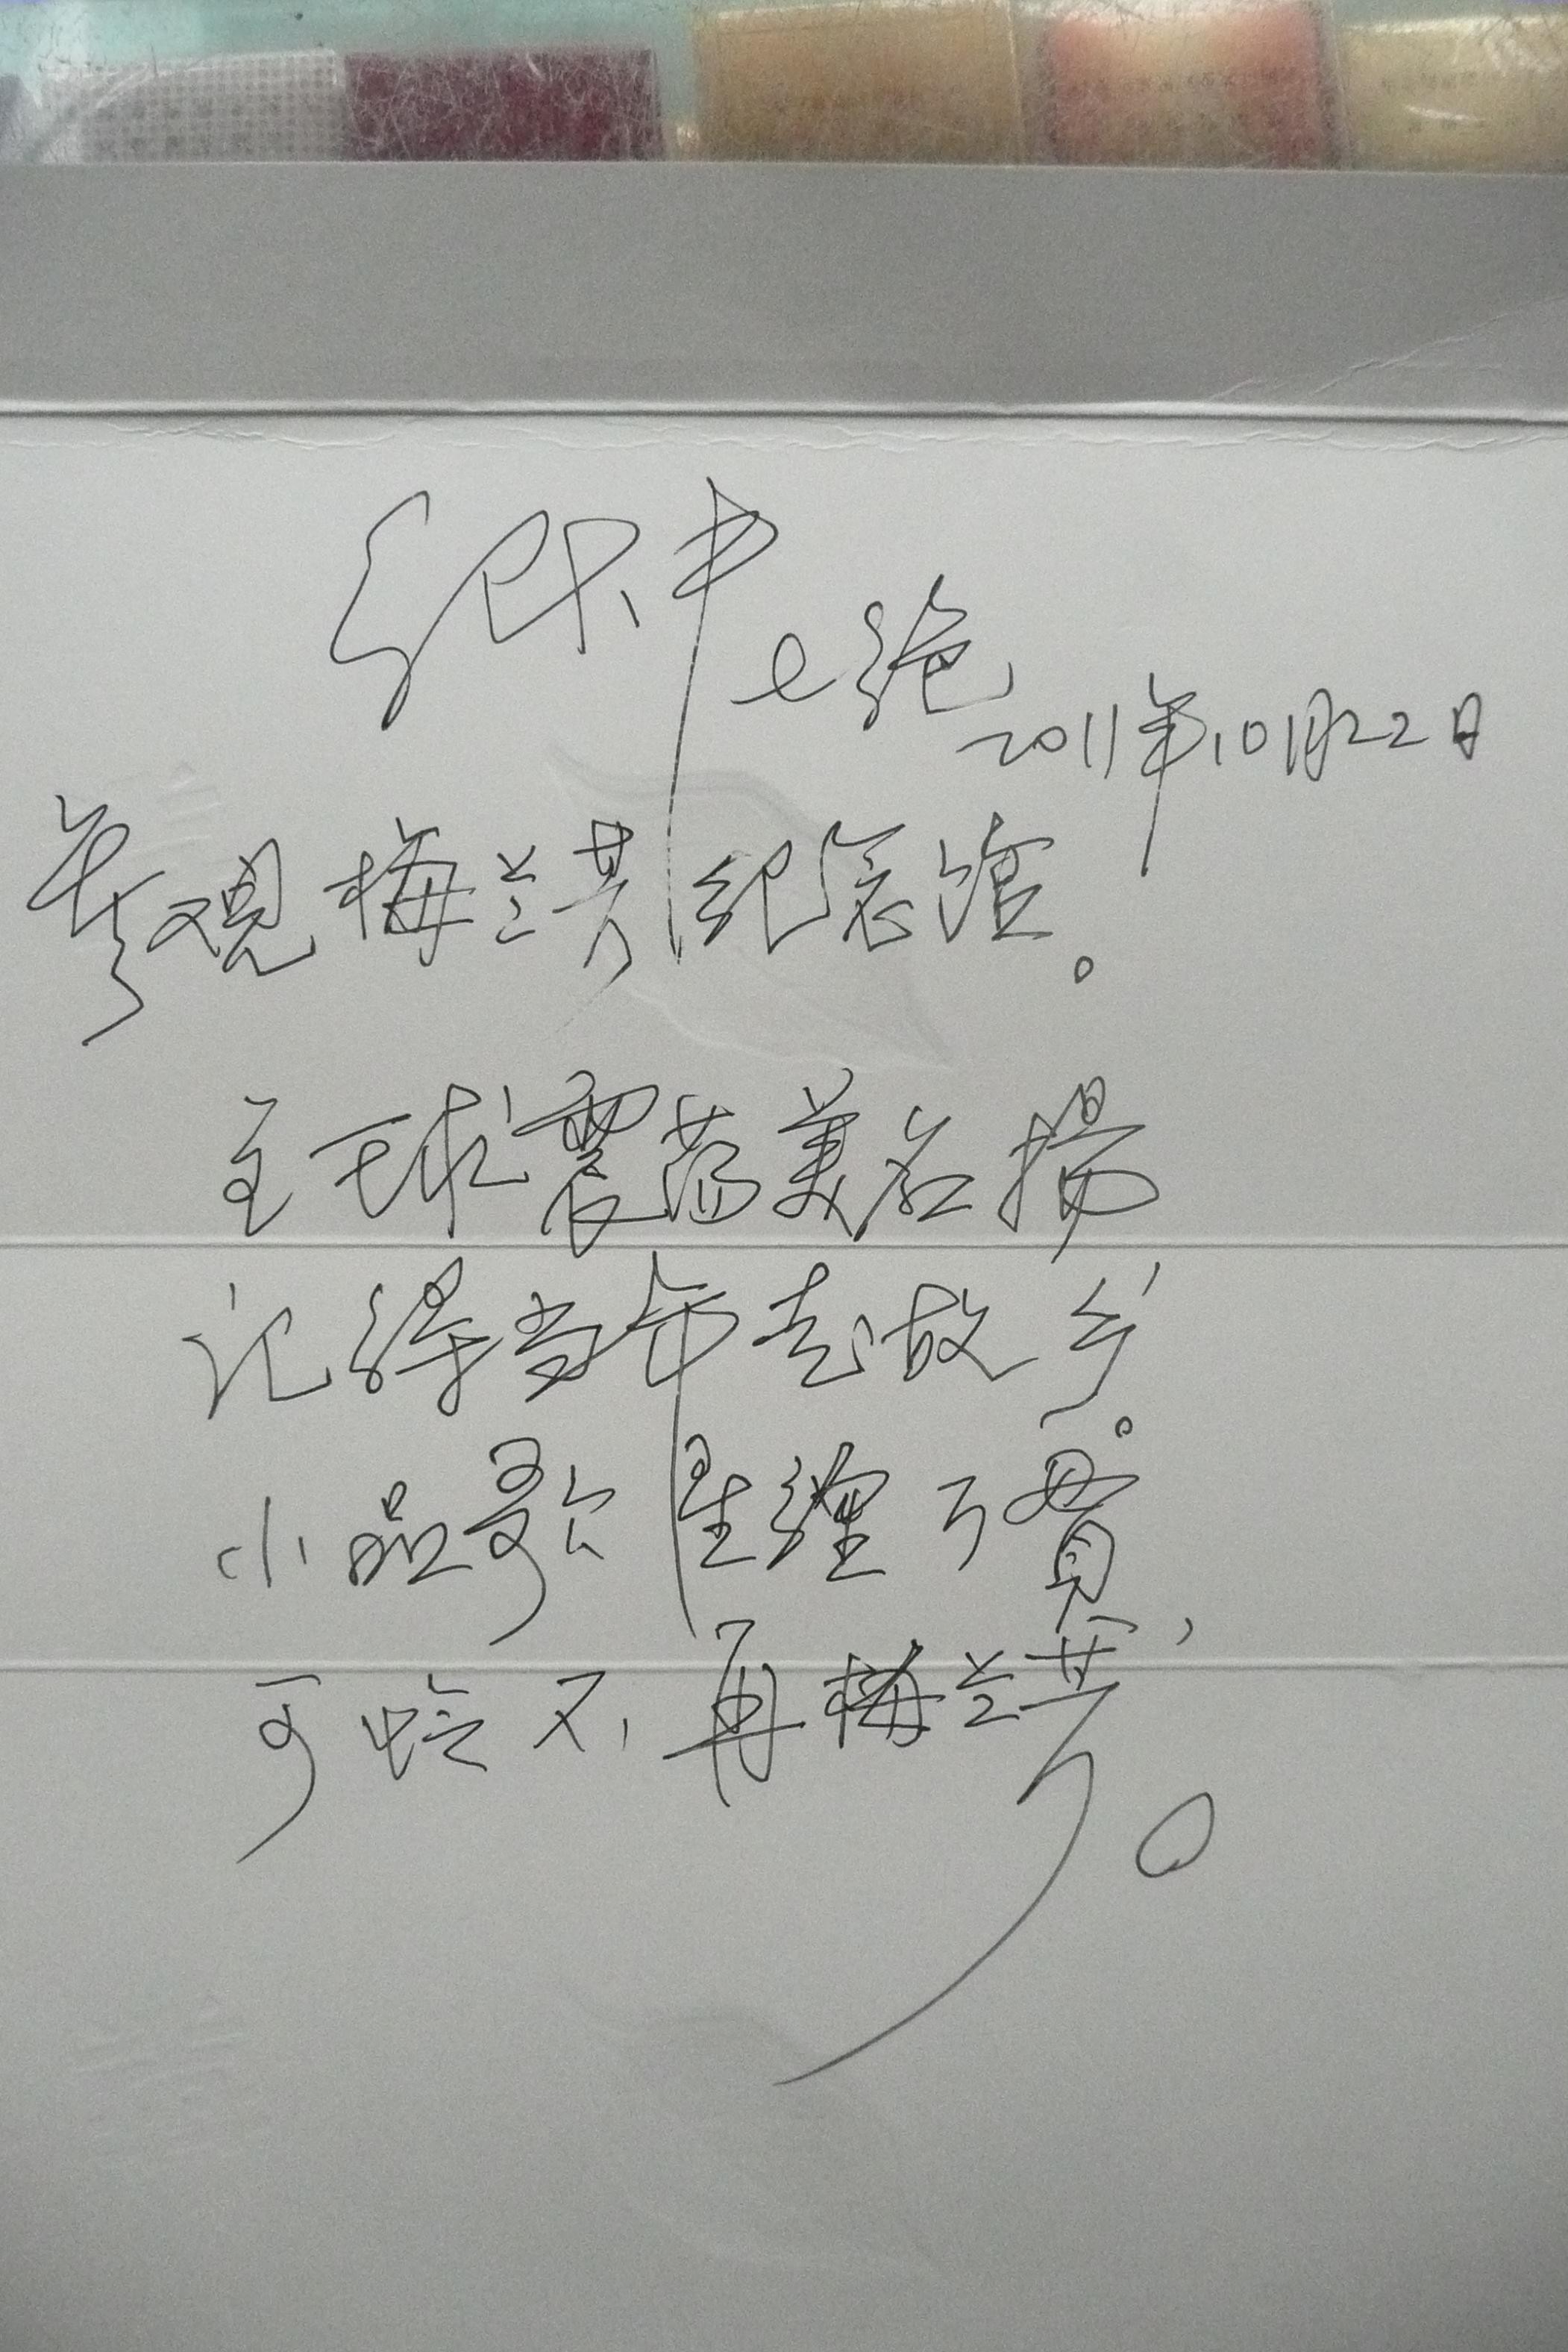 七绝
2011年10月22日
参观梅兰芳纪念馆。
全球震荡美名扬
记得当年走故乡。
小品歌星缠
可怜不再梅兰芳。